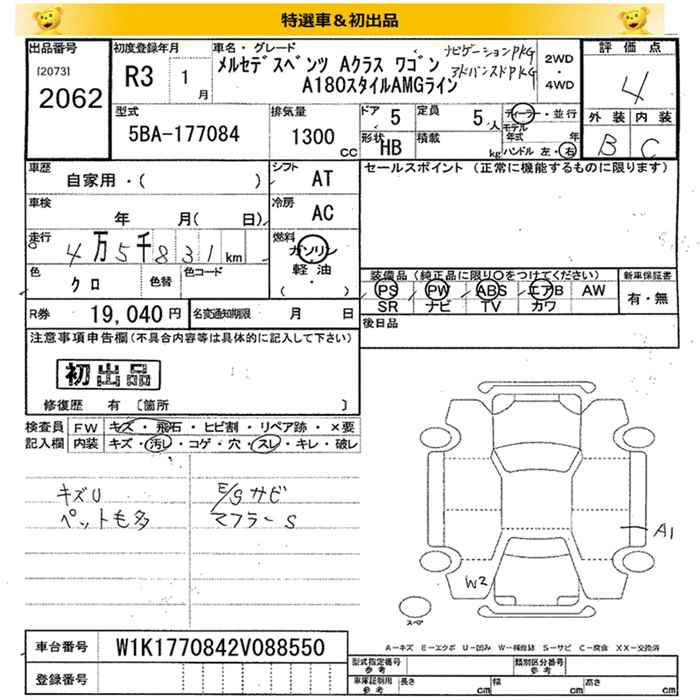 特選車＆初出品
出品番号
[2073]
2062
初度登録年月
R3 1月
車名・グレード
メルセデスベンツ Aクラス ワゴン
A180スタイルAMGライン
ナビゲーションPKG
アドバンスドPKG
2WD
・
4WD
評価点
4
外装 内装
B C
型式
5BA-177084
排気量
1300 CC
ドア 5
定員 5人
形状 HB
積載 kg
ディーラー・並行
モデル年式 年
ハンドル 左・右
車歴
自家用・( )
シフト AT
車検
年 月(日)
冷房 AC
走行
4万5千831km
燃料
ガソリン
軽油
・( )
色 クロ
色替
色コード
R券 19,040円
名変通知期限 月 日
セールスポイント（正常に機能するものに限ります）
装備品（純正品に限り○をつけてください）
PS PW ABS エアB AW
SR ナビ TV カワ
新車保証書
有・無
後日品
注意事項申告欄(不具合内容等は具体的に記入して下さい)
初出品
修復歴 有 〔箇所 〕
検査員記入欄
FW キズ・飛石・ヒビ割・リペア跡・×要
内装 キズ・汚レ・コゲ・穴・スレ・キレ・破レ
キズU
ペットも多
E/Sサビ
マフラーS
A1
W2
スペア
車台番号 W1K1770842V088550
登録番号
A－キズ E－エクボ U－凹み W－補修跡 S－サビ C－腐食 XX－交換済
型式指定番号 参考
類別区分番号 参考
車庫証明用 参考
長さ cm 幅 cm 高さ cm